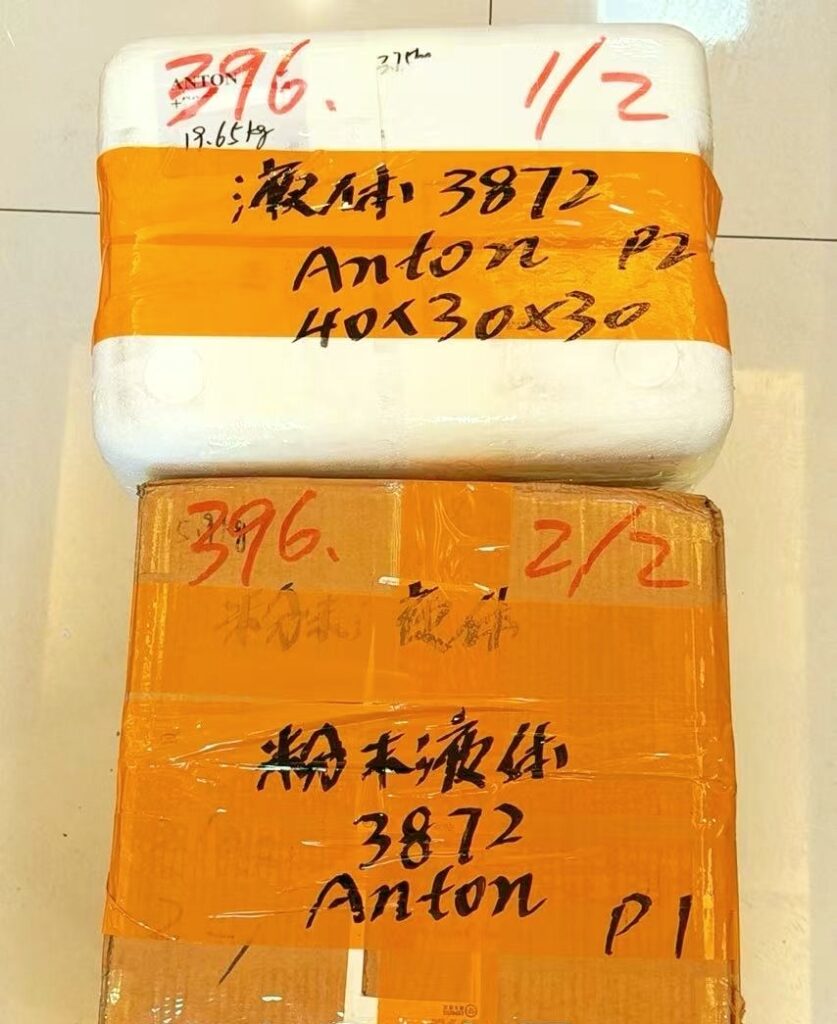 396. 1/2
ANTON
19.65kg
液体 3872
Anton P2
40x30x30
396. 2/2
粉末 液体
粉末液体
3872
Anton
P1